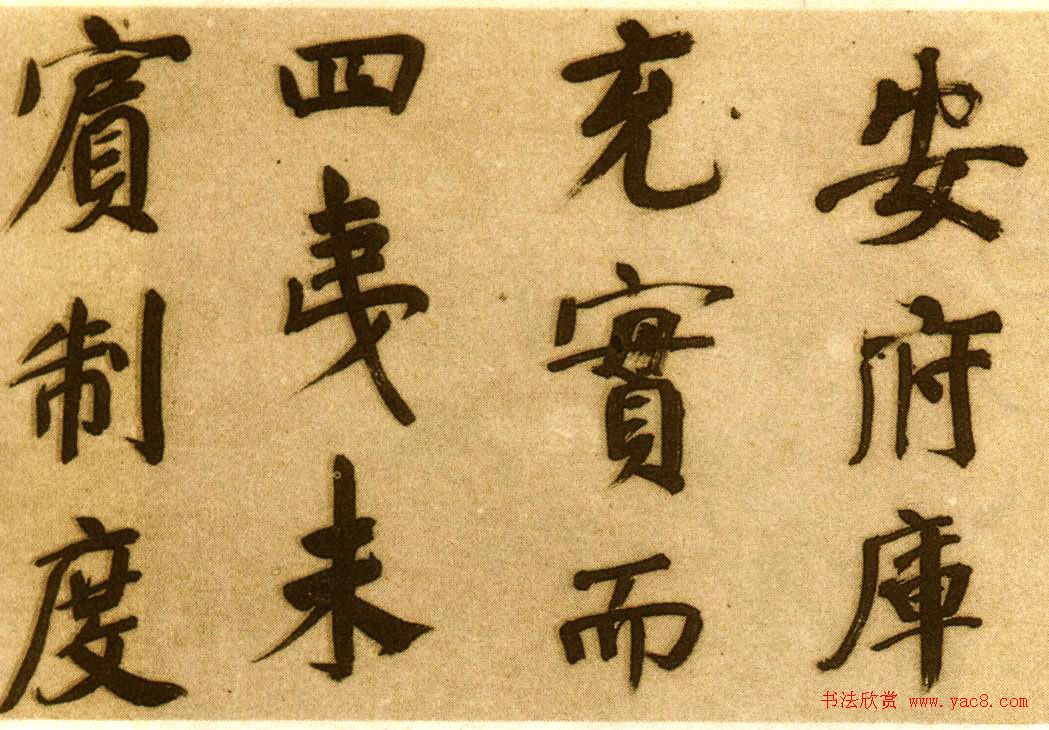 安府庫
充實而
四夷未
賔制度
书法欣赏 www.yac8.com